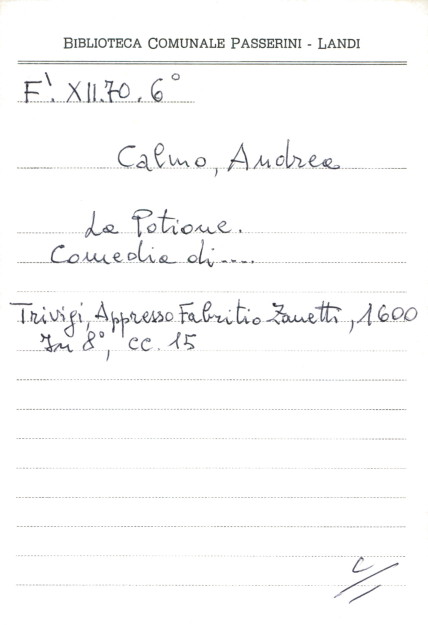 BIBLIOTECA COMUNALE PASSERINI - LANDI
F'. XII.70. 6°
Calmo, Andrea
La Potione.
Comedia di....
Trivigi, Appresso Fabritio Zanetti, 1600
In 8°, cc. 15
C